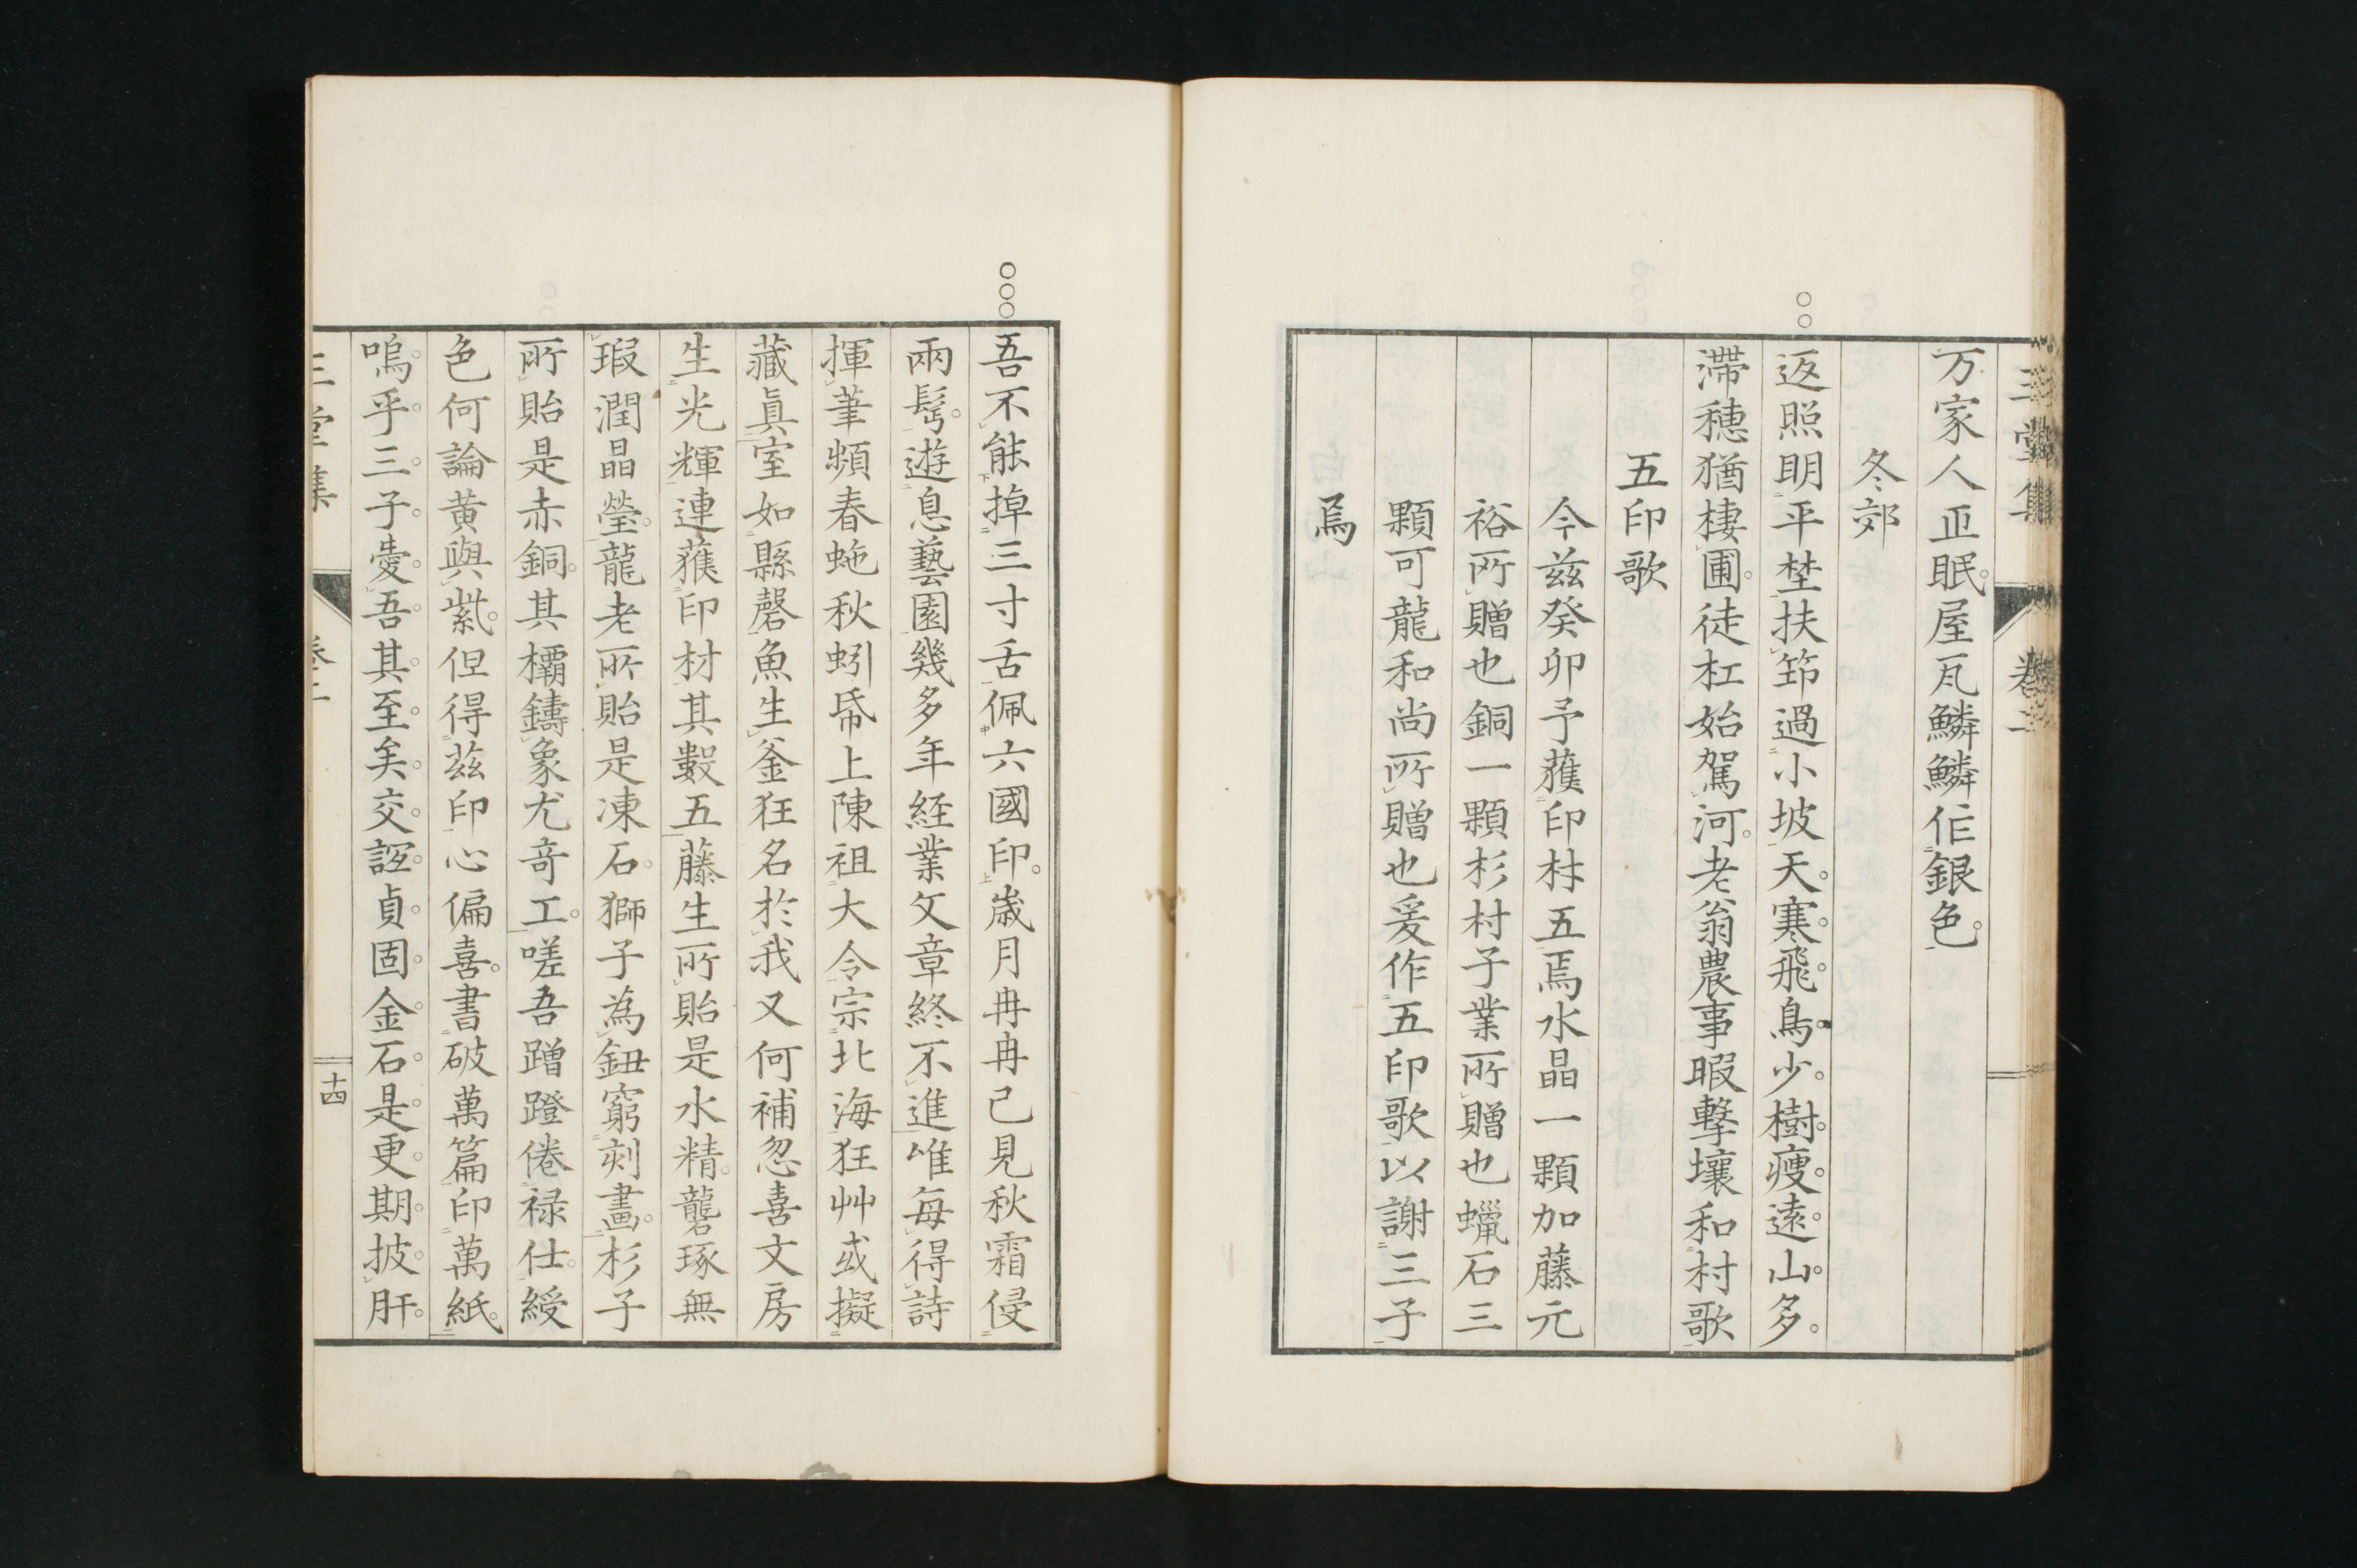 三堂集
卷二
万家人正眠屋瓦鱗鱗作銀色
冬郊
返照明平埜扶筇過小坡天寒飛鳥少樹瘦遠山多
滯穗猶棲圃徒杠始駕河老翁農事暇擊壤和村歌
五印歌
今茲癸卯予獲印材五焉水晶一顆加藤元
裕所贈也銅一顆杉村子業所贈也蠟石三
顆可龍和尚所贈也爰作五印歌以謝三子
焉
吾不能掉三寸舌佩六國印歲月冉冉已見秋霜侵
兩髩遊息藝園幾多年経業文章終不進唯每得詩
揮筆頻春虵秋蚓帋上陳祖大令宗北海狂艸或擬
藏眞室如縣磬魚生釜狂名於我又何補忽喜文房
生光輝連獲印材其數五藤生所貽是水精礱琢無
瑕潤晶瑩龍老所貽是凍石獅子為鈕窮刻畫杉子
所貽是赤銅其欛鑄象尤奇工嗟吾蹭蹬倦禄仕綬
色何論黃與紫但得茲印心偏喜書破萬篇印萬紙
嗚乎三子愛吾其至矣交誼貞固金石是更期披肝
三堂集
卷二
十四